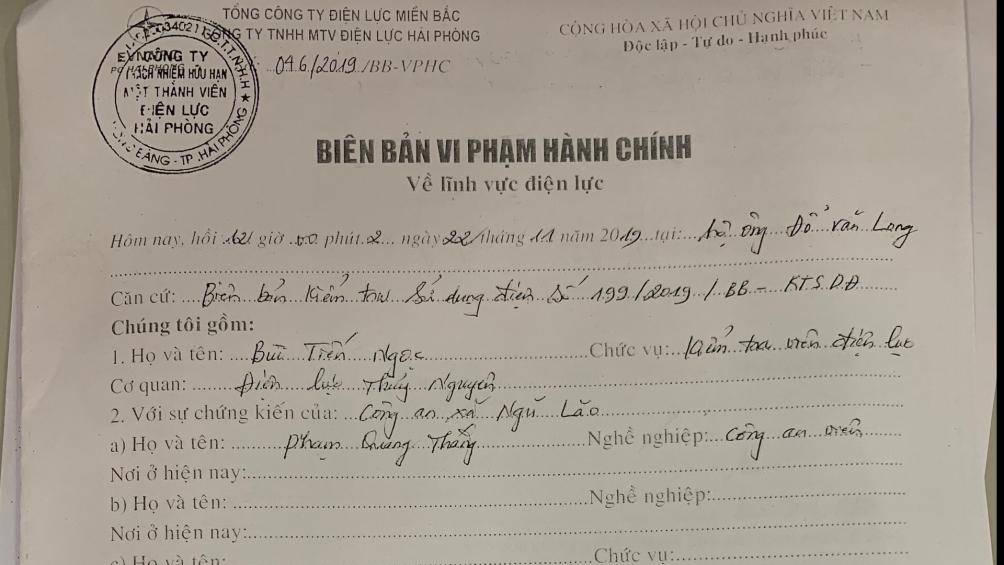 TỔNG CÔNG TY ĐIỆN LỰC MIỀN BẮC
CÔNG TY TNHH MTV ĐIỆN LỰC HẢI PHÒNG
046/2019/BB-VPHC
CỘNG HÒA XÃ HỘI CHỦ NGHĨA VIỆT NAM
Độc lập - Tự do - Hạnh phúc
CÔNG TY
TRÁCH NHIỆM HỮU HẠN
MỘT THÀNH VIÊN
ĐIỆN LỰC
HẢI PHÒNG
BIÊN BẢN VI PHẠM HÀNH CHÍNH
Về lĩnh vực điện lực
Hôm nay, hồi giờ 00 phút ngày 22 tháng 11 năm 2019 tại: hộ ông Đỗ Văn Long
Căn cứ: Biên bản kiểm tra Sử dụng điện Số 199/2019/BB-KTSDĐ
Chúng tôi gồm:
1. Họ và tên: Bùi Tiến Ngọc Chức vụ: Kiểm tra viên điện lực
Cơ quan: Điện lực Thủy Nguyên
2. Với sự chứng kiến của: Công an xã Ngũ Lão
a) Họ và tên: Phạm Quang Thắng Nghề nghiệp: Công an viên
Nơi ở hiện nay:
b) Họ và tên: Nghề nghiệp:
Nơi ở hiện nay:
c) Họ và tên: Chức vụ: